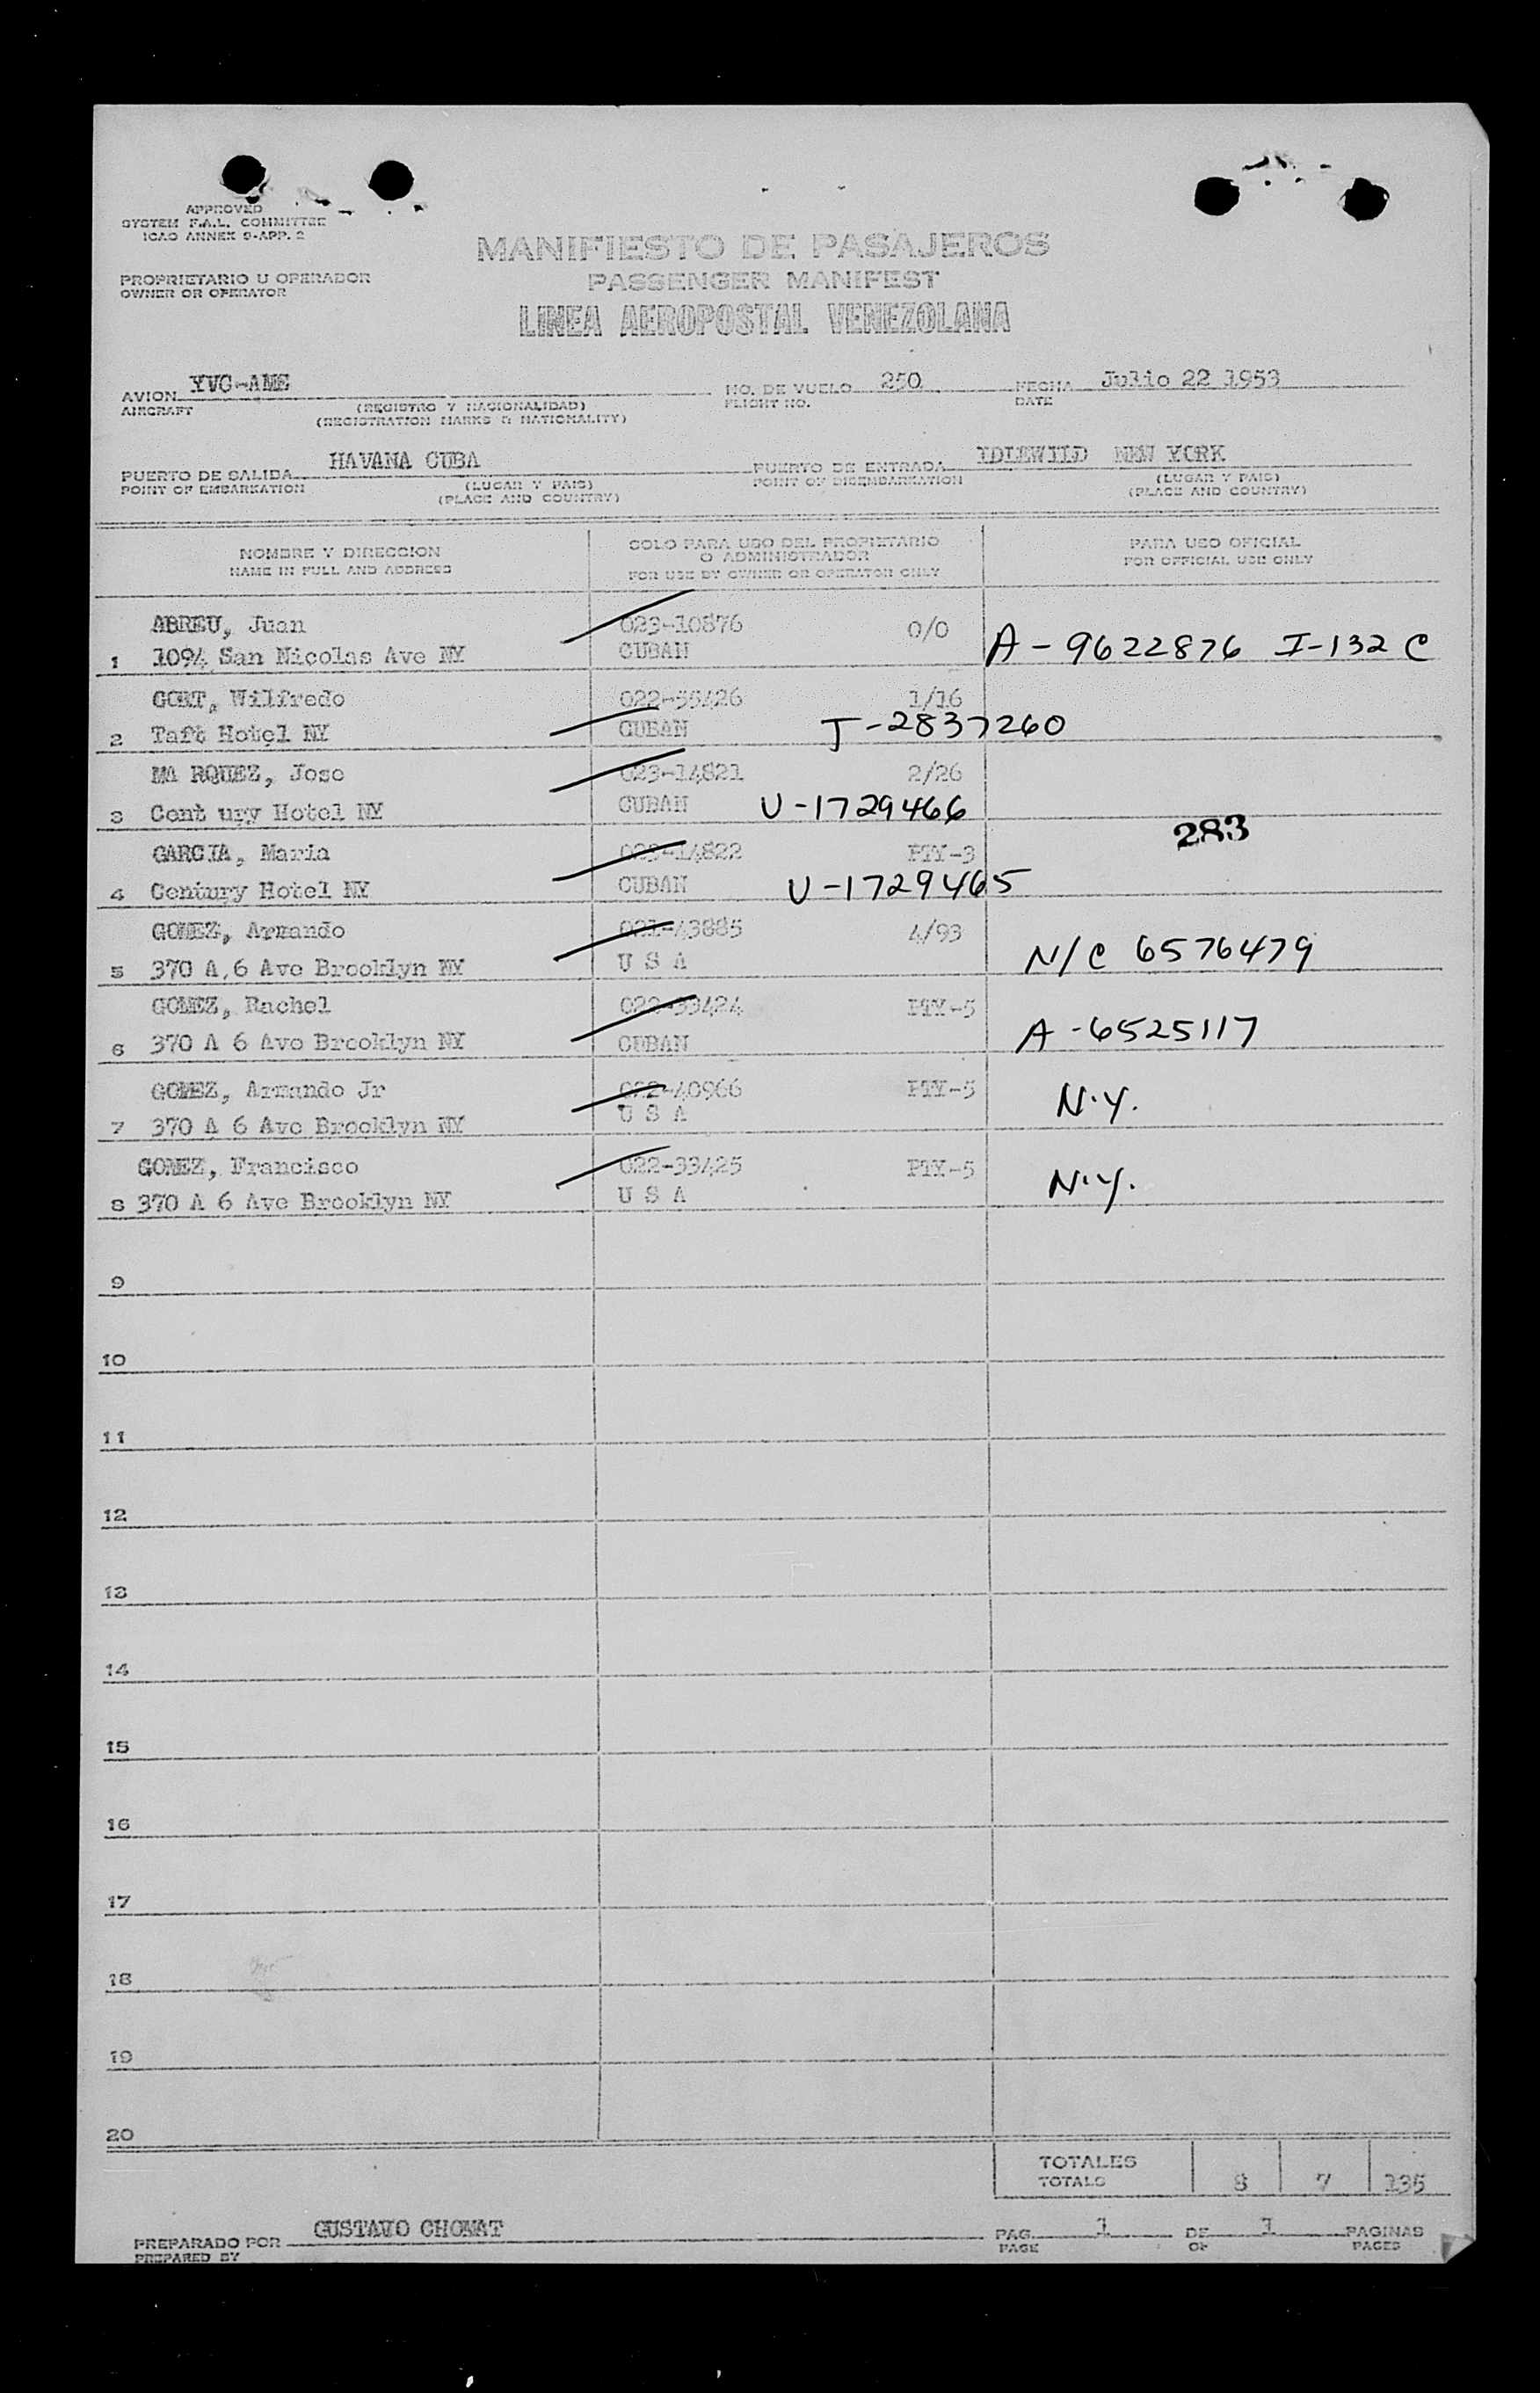 APPROVED
SYSTEM F.A.L. COMMITTEE
ICAO ANNEX 9-APP. 2
MANIFIESTO DE PASAJEROS
PROPRIETARIO U OPERADOR
OWNER OR OPERATOR
PASSENGER MANIFEST
LINEA AEROPOSTAL VENEZOLANA
AVION YVG-AME NO. DE VUELO 250 FECHA Julio 22 1953
AIRCRAFT (REGISTRO Y NACIONALIDAD) FLIGHT NO. DATE
(REGISTRATION MARKS & NATIONALITY)
PUERTO DE SALIDA HAVANA CUBA PUERTO DE ENTRADA IDLEWILD NEW YORK
POINT OF EMBARKATION (LUGAR Y PAIS) POINT OF DISEMBARKATION (LUGAR Y PAIS)
(PLACE AND COUNTRY) (PLACE AND COUNTRY)
NOMBRE Y DIRECCION SOLO PARA USO DEL PROPIETARIO PARA USO OFICIAL
O ADMINISTRADOR
NAME IN FULL AND ADDRESS FOR USE BY OWNER OR OPERATOR ONLY FOR OFFICIAL USE ONLY
ABREU, Juan 023-10876 0/0
1 1094 San Nicolas Ave NY CUBAN A-9622876 I-132 C
GORT, Wilfredo 022-55426 1/16
2 Taft Hotel NY CUBAN J-2837260
MA RQUEZ, Jose 023-14821 2/26
3 Cent ury Hotel NY CUBAN U-1729466
283
GARCIA, Maria 023-14822 PTY-3
4 Century Hotel NY CUBAN U-1729465
GOMEZ, Armando 021-43885 4/93
5 370 A,6 Ave Brooklyn NY U S A N/C 6576479
GOMEZ, Rachel 022-33424 PTY-5
6 370 A 6 Ave Brooklyn NY CUBAN A-6525117
GOMEZ, Armando Jr 022-40966 PTY-5
7 370 A 6 Ave Brooklyn NY U S A N.Y.
GOMEZ, Francisco 022-33425 PTY-5
8 370 A 6 Ave Brooklyn NY U S A N.Y.
9
10
11
12
13
14
15
16
17
18
19
20
TOTALES
TOTALS 8 7 135
PREPARADO POR GUSTAVO CHOMAT PAG. 1 DE 1 PAGINAS
PREPARED BY PAGE OF PAGES